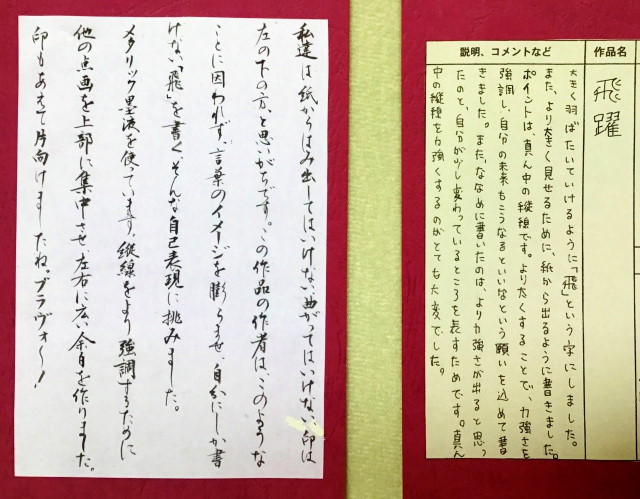 作品名
飛躍
説明、コメントなど
大きく羽ばたいていけるように「飛」という字にしました。
また、より大きく見せるために、紙から出るように書きました。
ポイントは、真ん中の縦棒です。より太くすることで、力強さを
強調し、自分の未来もこうなるといいなという願いを込めて書
きました。また、ななめに書いたのは、より力強さが出ると思っ
たのと、自分が少し変わっているところを表すためです。真ん
中の縦棒を力強くするのがとても大変でした。
私達は紙からはみ出してはいけない曲がってはいけない、印は
左の下の方、と思いがちです。この作品の作者は、このような
ことに囚われず、言葉のイメージを膨らませ、自分にしか書
けない「飛」を書く、そんな自己表現に挑みました。
メタリック墨液を使っています。縦線をより強調するために
他の点画を上部に集中させ、左右に広い余白を作りました。
印もあえて片向けましたね。ブラヴォ〜！